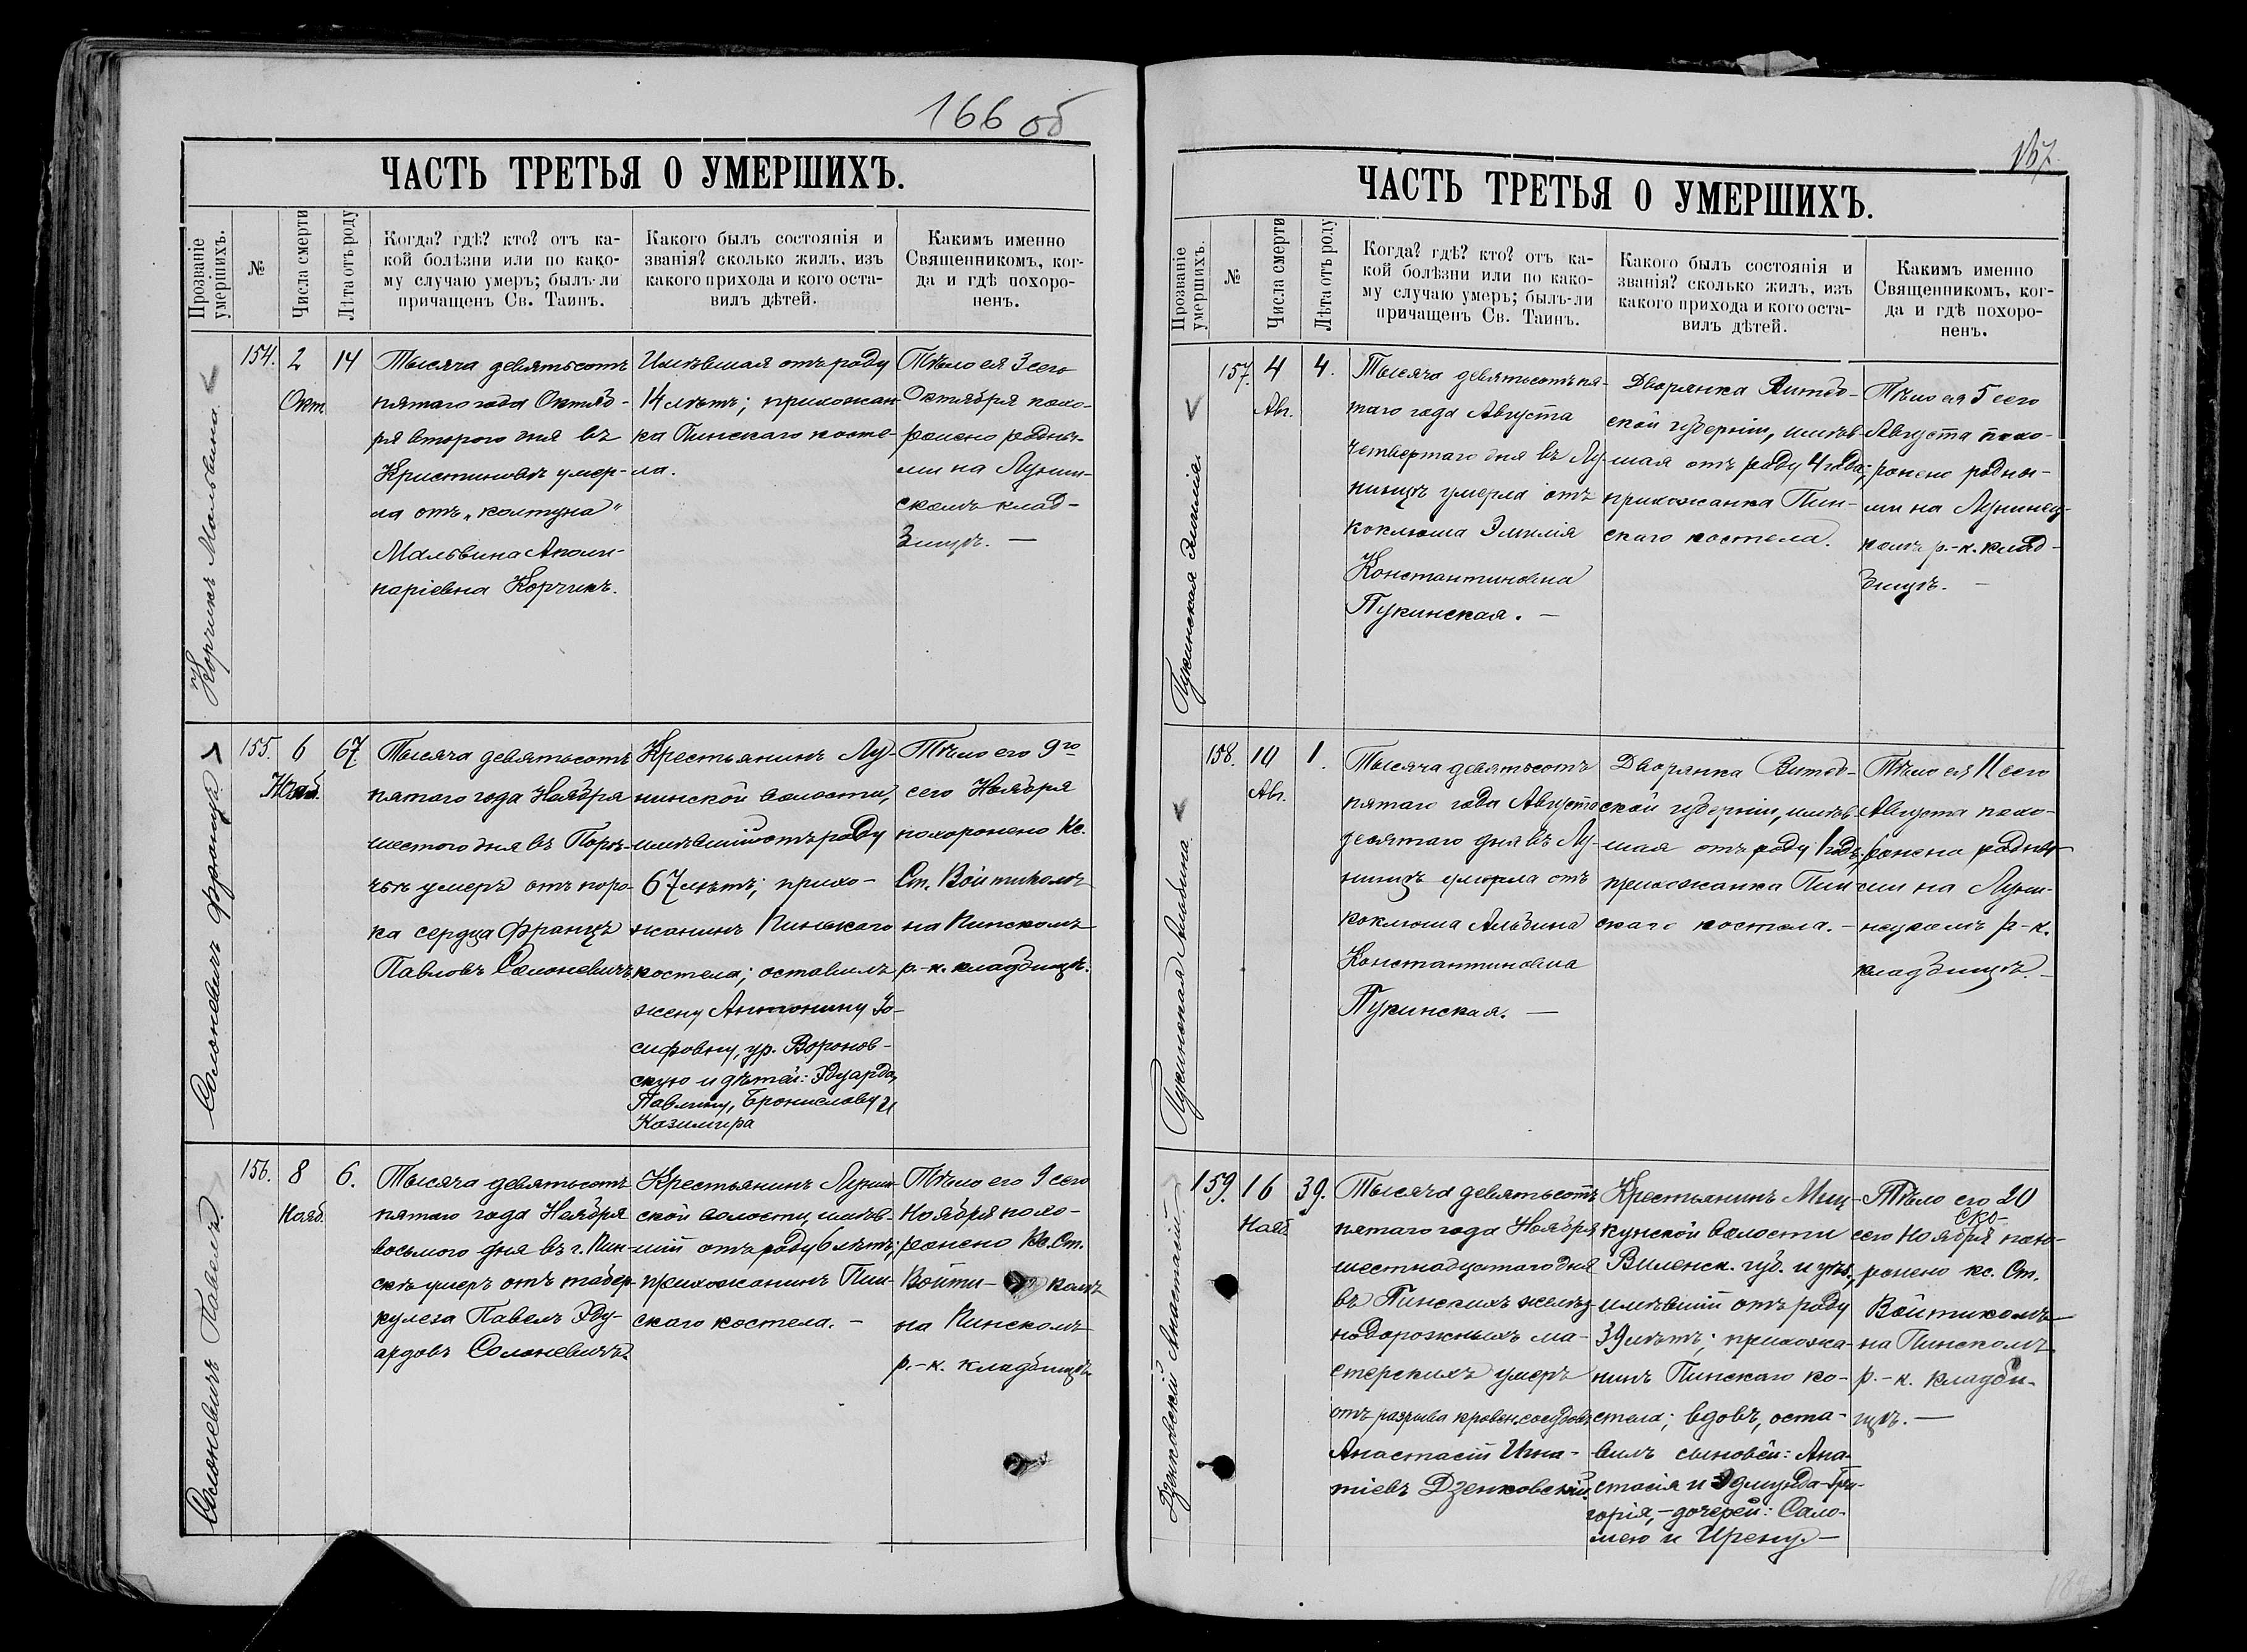 166 об
ЧАСТЬ ТРЕТЬЯ О УМЕРШИХЪ.
Прозваніе умершихъ.
№
Числа смерти
Лѣта отъ роду
Когда? гдѣ? кто? отъ ка-
кой болѣзни или по како-
му случаю умеръ; былъ-ли
причащенъ Св. Таинъ.
Какого былъ состоянія и
званія? сколько жилъ, изъ
какого прихода и кого оста-
вилъ дѣтей.
Какимъ именно
Священникомъ, ког-
да и гдѣ похоро-
ненъ.
Корчикъ Мальвина.
154.
2
Окт.
14
Тысяча девятьсотъ
пятаго года Октяб-
ря второго дня въ
Кристиновѣ умер-
ла отъ „колтуна"
Мальвина Аполи-
наріевна Корчикъ.
Имѣвшая отъ роду
14 лѣтъ; прихожан-
ка Пинскаго косте-
ла.
Тѣло ея 3 сего
Октября похо-
ронено родны-
ми на Лунин-
скомъ клад-
бищѣ. —
Солоневичъ Францъ
155.
6
Нояб.
67.
Тысяча девятьсотъ
пятаго года Ноября
шестого дня въ Порѣ-
чьѣ умеръ отъ поро-
ка сердца Францъ
Павловъ Солоневичъ
Крестьянинъ Лу-
нинской волости,
имѣвшій отъ роду
67 лѣтъ; прихо-
жанинъ Пинскаго
костела; оставилъ
жену Антонину Іо-
сифовну, ур. Воронов-
скую и дѣтей: Эдуарда,
Павлину, Брониславу и
Казимира
Тѣло его 9го
сего Ноября
похоронено Кс.
Ст. Войтикомъ
на Пинскомъ
р.-к. кладбищѣ.
Солоневичъ Павелъ
156.
8
Нояб.
6.
Тысяча девятьсотъ
пятаго года Ноября
восьмого дня въ г. Пин-
скѣ умеръ отъ тубер-
кулеза Павелъ Эду-
ардовъ Солоневичъ.
Крестьянинъ Лунин-
ской волости, имѣв-
шій отъ роду 6 лѣтъ;
прихожанинъ Пин-
скаго костела. —
Тѣло его 9 сего
Ноября похо-
ронено Кс. Ст.
Войти- комъ
на Пинскомъ
р.-к. кладбищѣ
167.
ЧАСТЬ ТРЕТЬЯ О УМЕРШИХЪ.
Прозваніе умершихъ.
№
Числа смерти
Лѣта отъ роду
Когда? гдѣ? кто? отъ ка-
кой болѣзни или по како-
му случаю умеръ; былъ-ли
причащенъ Св. Таинъ.
Какого былъ состоянія и
званія? сколько жилъ, изъ
какого прихода и кого оста-
вилъ дѣтей.
Какимъ именно
Священникомъ, ког-
да и гдѣ похоро-
ненъ.
Пукинская Эмилія.
157.
4
Авг.
4.
Тысяча девятьсотъ пя-
таго года Августа
четвертаго дня въ Лу-
нинцѣ умерла отъ
коклюша Эмилія
Константиновна
Пукинская. —
Дворянка Витеб-
ской губерніи, имѣв-
шая отъ роду 4 года;
прихожанка Пин-
скаго костела.
Тѣло ея 5 сего
Августа похо-
ронено родны-
ми на Лунинец-
комъ р.-к. клад-
бищѣ. —
Пукинская Альбина.
158.
10
Авг.
1.
Тысяча девятьсотъ
пятаго года Августа
десятаго дня въ Лу-
нинцѣ умерла отъ
коклюша Альбина
Константиновна
Пукинская. —
Дворянка Витеб-
ской губерніи, имѣв-
шая отъ роду 1 годъ;
прихожанка Пин-
скаго костела. —
Тѣло ея 11 сего
Августа похо-
ронено родны-
ми на Луни-
нецкомъ р-к.
кладбищѣ. —
Дзенковскій Анастасій.
159.
16
Нояб.
39.
Тысяча девятьсотъ
пятаго года Ноября
шестнадцатаго дня
въ Пинскихъ желѣз-
нодорожныхъ ма-
стерскихъ умеръ
отъ разрыва кровен. сосудовъ
Анастасій Игна-
тіевъ Дзенковскій.
Крестьянинъ Миц-
кунской волости
Виленск. губ. и уѣз.,
имѣвшій отъ роду
39 лѣтъ; прихожа-
нинъ Пинскаго ко-
стела; вдовъ, оста-
вилъ сыновей: Ана-
стасія и Эдмунда-Гри-
горія, — дочерей: Сало-
мею и Ирену. —
Тѣло его 20
сего Ноября похо-
ронено кс. Ст.
Войтикомъ
на Пинскомъ
р.-к. кладби-
щѣ. —